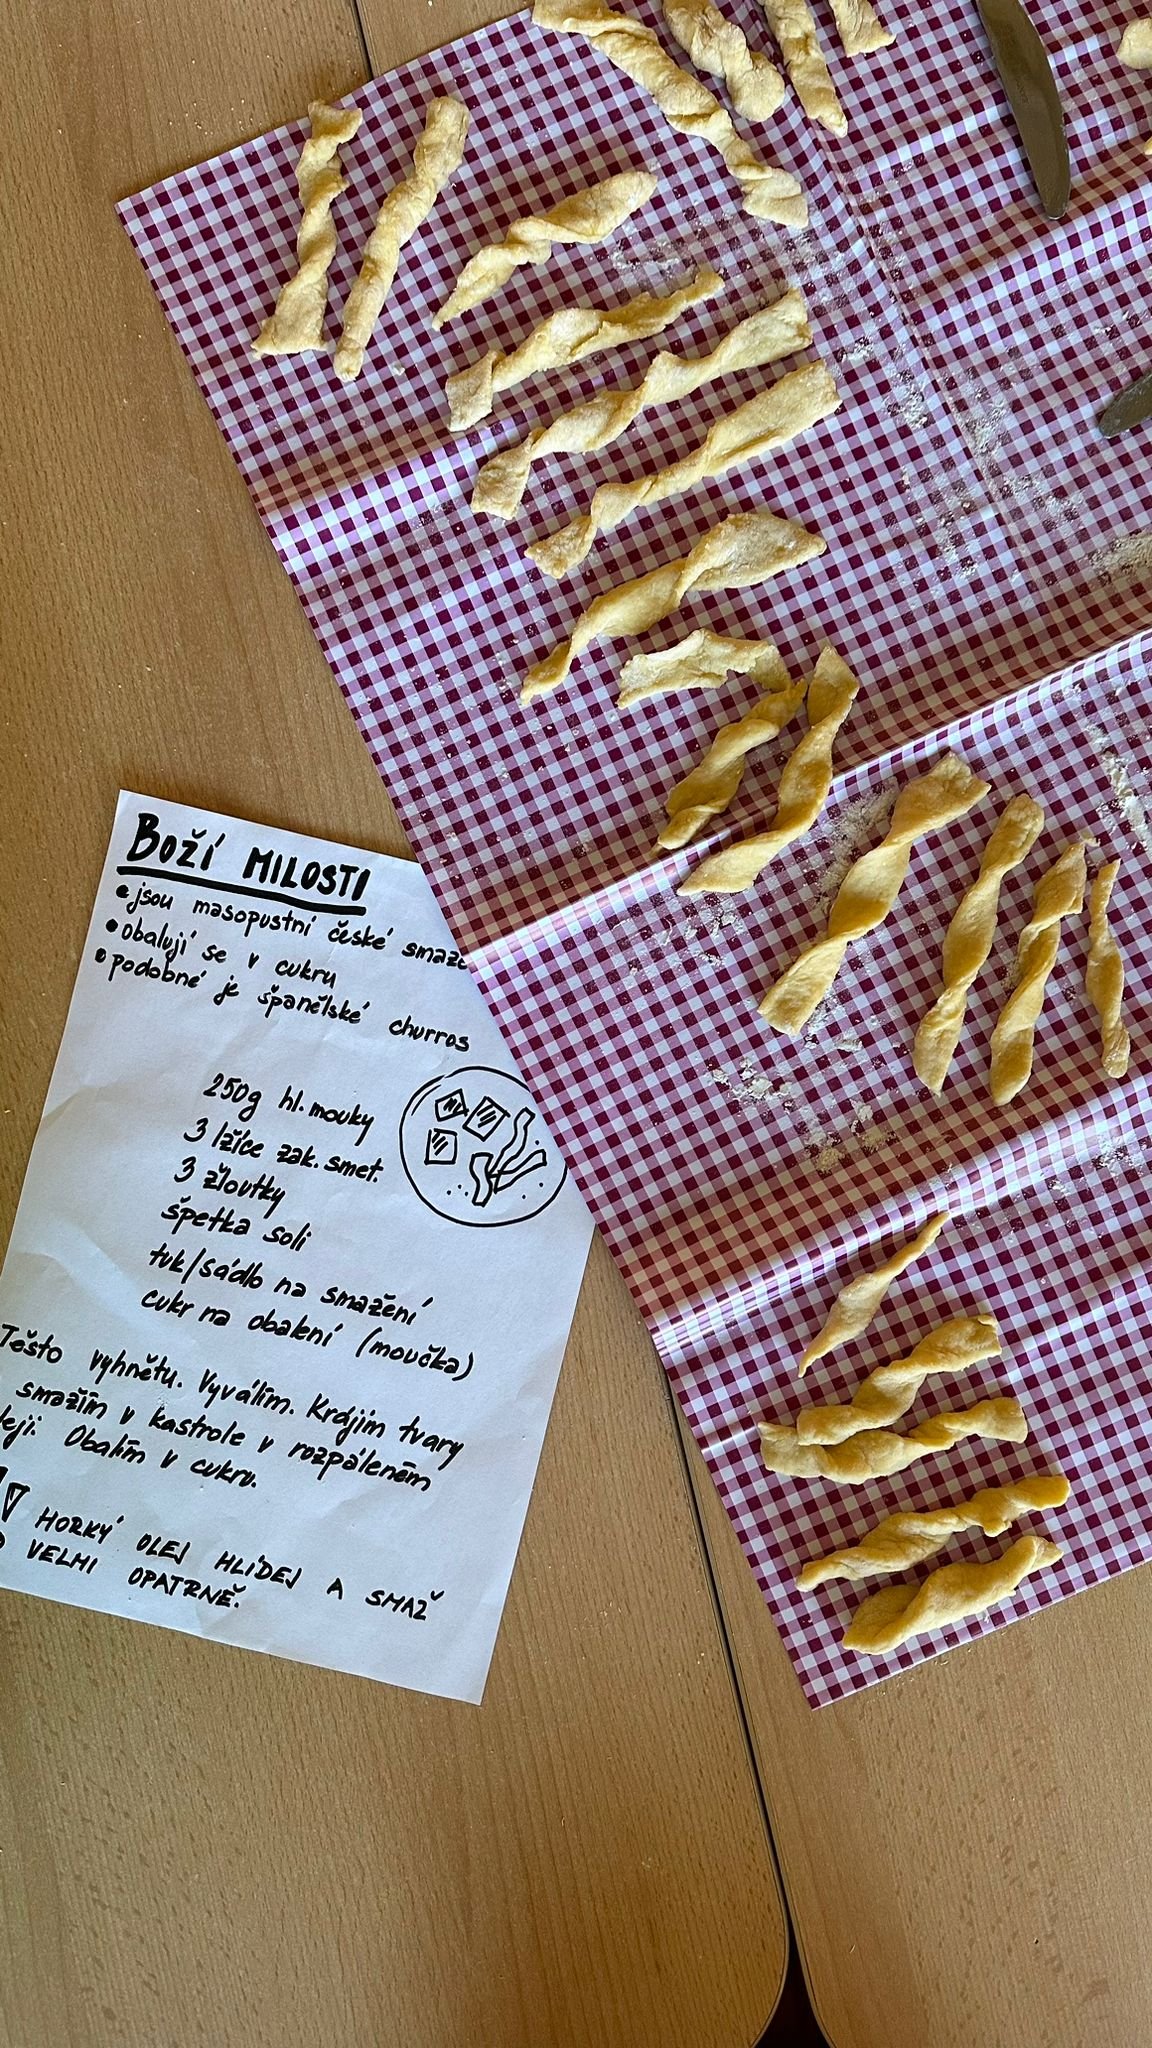 BOŽÍ MILOSTI
• jsou masopustní české smaže
• obalují se v cukru
• podobné je španělské churros
250g hl. mouky
3 lžíce zak. smet.
3 žloutky
špetka soli
tuk/sádlo na smažení
cukr na obalení (moučka)
Těsto vyhnětu. Vyválím. Krájím tvary
smažím v kastrole v rozpáleném
leji. Obalím v cukru.
HORKÝ OLEJ HLÍDEJ A SMAŽ
VELMI OPATRNĚ.